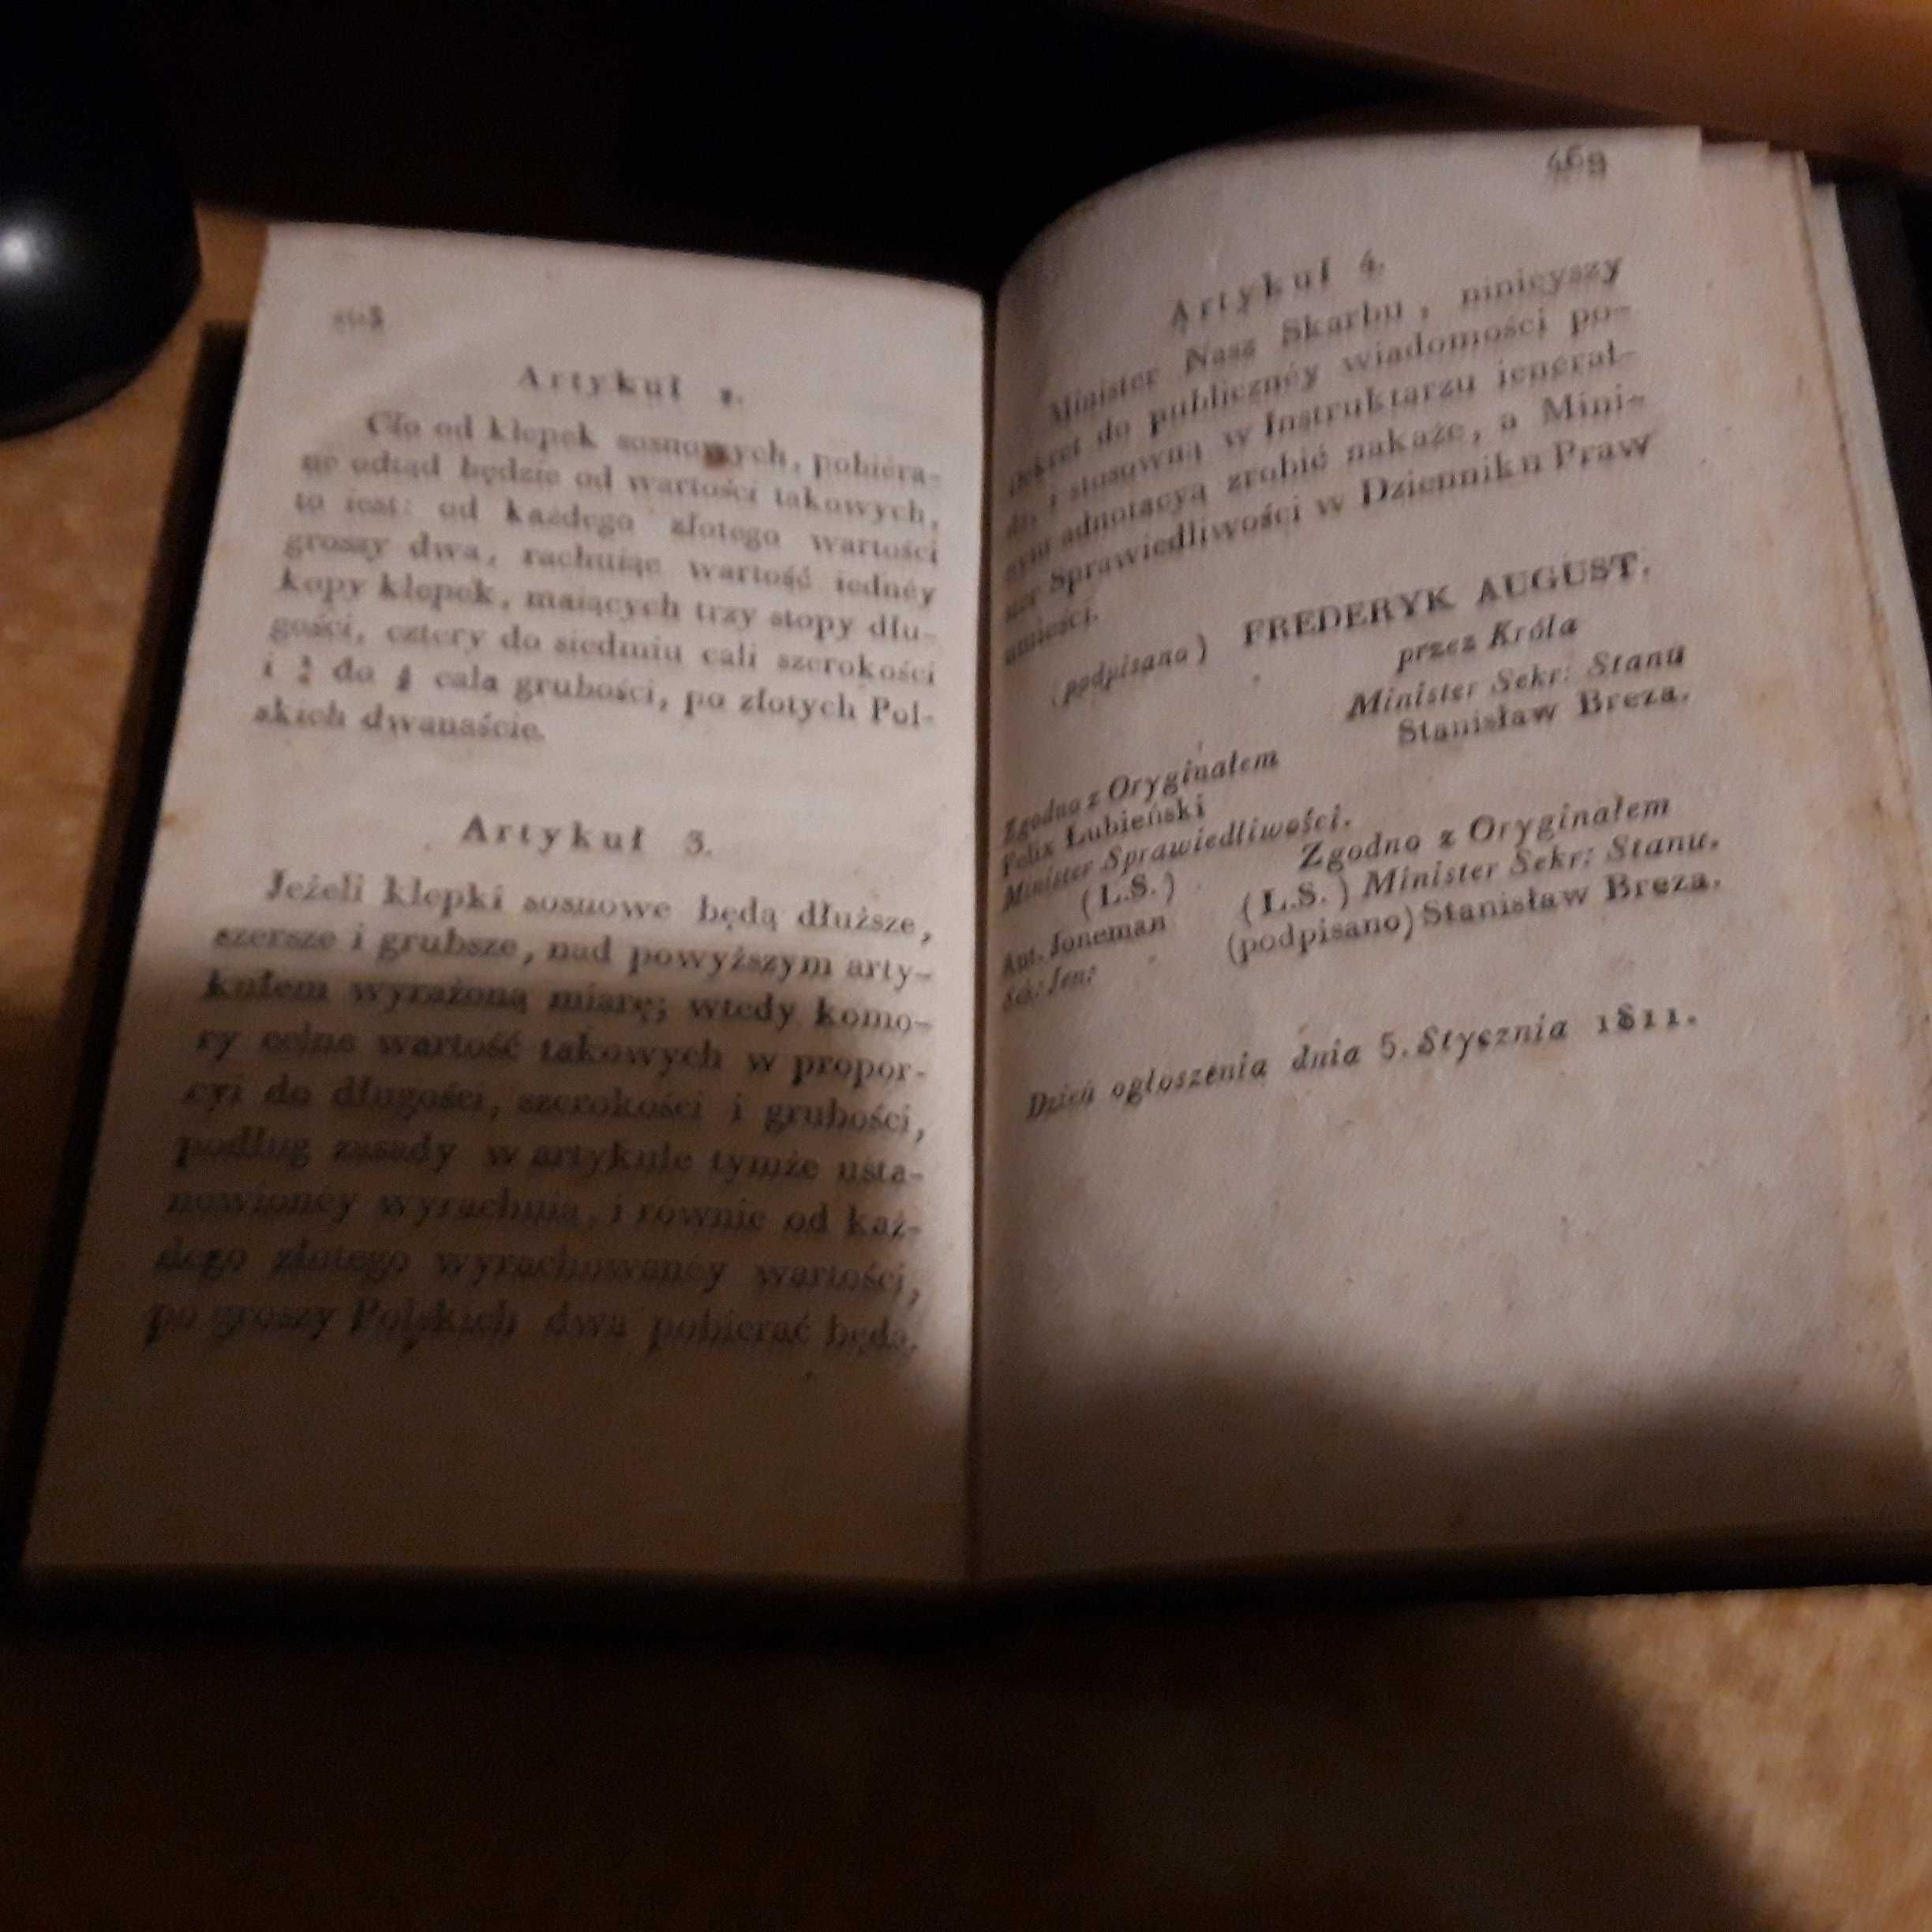 468
Artykuł 2.
Cło od klepek sosnowych, pobiéra-
ne odtąd będzie od wartości takowych,
to iest: od każdego złotego wartości
groszy dwa, rachuiąc wartość iednéy
kopy klepek, maiących trzy stopy dłu-
gości, cztery do siedmiu cali szerokości
i do cala grubości, po złotych Pol-
skich dwanaście.
Artykuł 3.
Jeżeli klepki sosnowe będą dłuższe,
szersze i grubsze, nad powyższym arty-
kułem wyrażoną miarę; wtedy komo-
ry celne wartość takowych w propor-
cyi do długości, szerokości i grubości,
podług zasady w artykule tymże usta-
nowionéy wyrachuią, i równie od każ-
dego złotego wyrachowanéy wartości,
po groszy Polskich dwa pobierać będą.
469
Artykuł 4.
Minister Nasz Skarbu, ninieyszy
dekret do publicznéy wiadomości po-
da, i stosowną w Instruktarzu ienerał-
nym adnotacyą zrobić nakaże, a Mini-
ster Sprawiedliwości w Dzienniku Praw
umieści.
(podpisano) FREDERYK AUGUST.
przez Króla
Minister Sekr: Stanu
Stanisław Breza.
Zgodno z Oryginałem
Felix Łubieński
Minister Sprawiedliwości.
(L.S.)
Zgodno z Oryginałem
(L.S.) Minister Sekr: Stanu.
(podpisano) Stanisław Breza.
Ant. Joneman
Sek: Jen:
Dzień ogłoszenia dnia 5. Stycznia 1811.